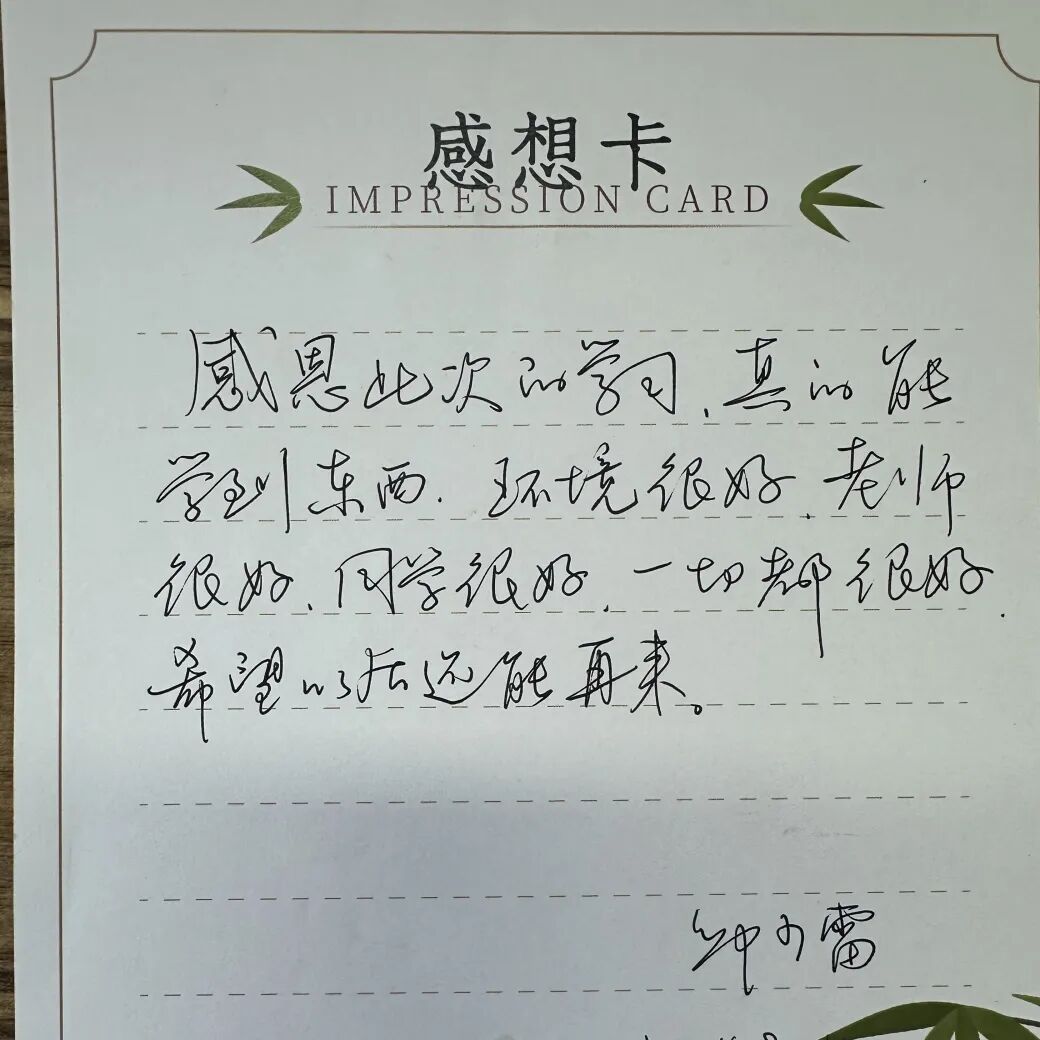 感想卡
IMPRESSION CARD
感恩此次的学习,真的能
学到东西.环境很好.老师
很好、同学很好,一切都很好.
希望以后还能再来。
钟少雷